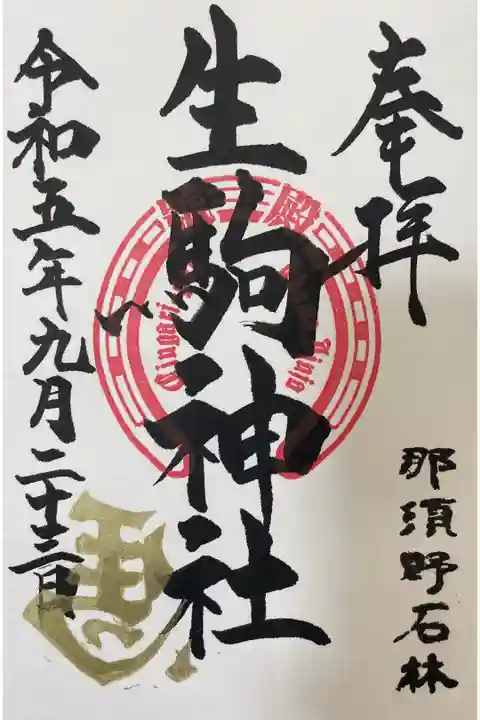 奉拝
那須野石林
生駒神社
令和五年九月二十三日
馬